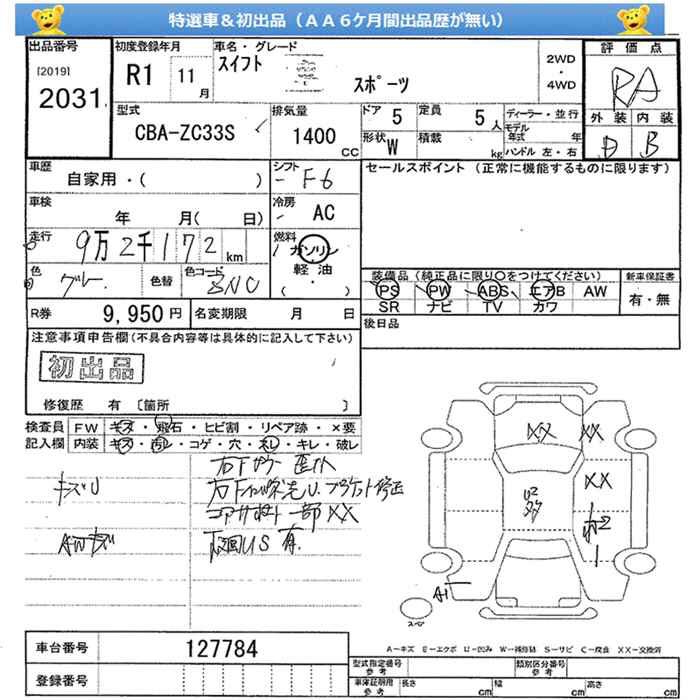 特選車&初出品（ＡＡ６ケ月間出品歴が無い）
出品番号
[2019]
2031
初度登録年月
R1 11月
車名・グレード
スイフト スポーツ
2WD
・
4WD
評価点
RA
外装 内装
D B
型式
CBA-ZC33S
排気量
1400 CC
ドア 5
定員 5人
形状 W
積載 kg
ディーラー・並行
モデル年式 年
ハンドル 左・右
車歴
自家用・( )
シフト
F6
セールスポイント（正常に機能するものに限ります）
車検
年 月( 日)
冷房
AC
走行
9万2千172km
燃料
ガソリン
軽油
( ・ )
色
グレー
色替
色コード
装備品（純正品に限り○をつけてください）
PS PW ABS エアB AW
SR ナビ TV カワ
新車保証書
有・無
R券 9,950円
名変期限 月 日
後日品
注意事項申告欄(不具合内容等は具体的に記入して下さい)
初出品
修復歴 有〔箇所 〕
検査員記入欄
FW キズ・飛石・ヒビ割・リペア跡・×要
内装 キズ・汚レ・コゲ・穴・スレ・キレ・破レ
キズU
AWキズ
コアサポート一部XX
下回りUS有
XX XX
XX
U2
A1
スペア
A－キズ E－エクボ U－凹み W－補修跡 S－サビ C－腐食 XX－交換済
車台番号 127784
登録番号
型式指定番号 参考
類別区分番号 参考
車庫証明用 参考
長さ cm 幅 cm 高さ cm